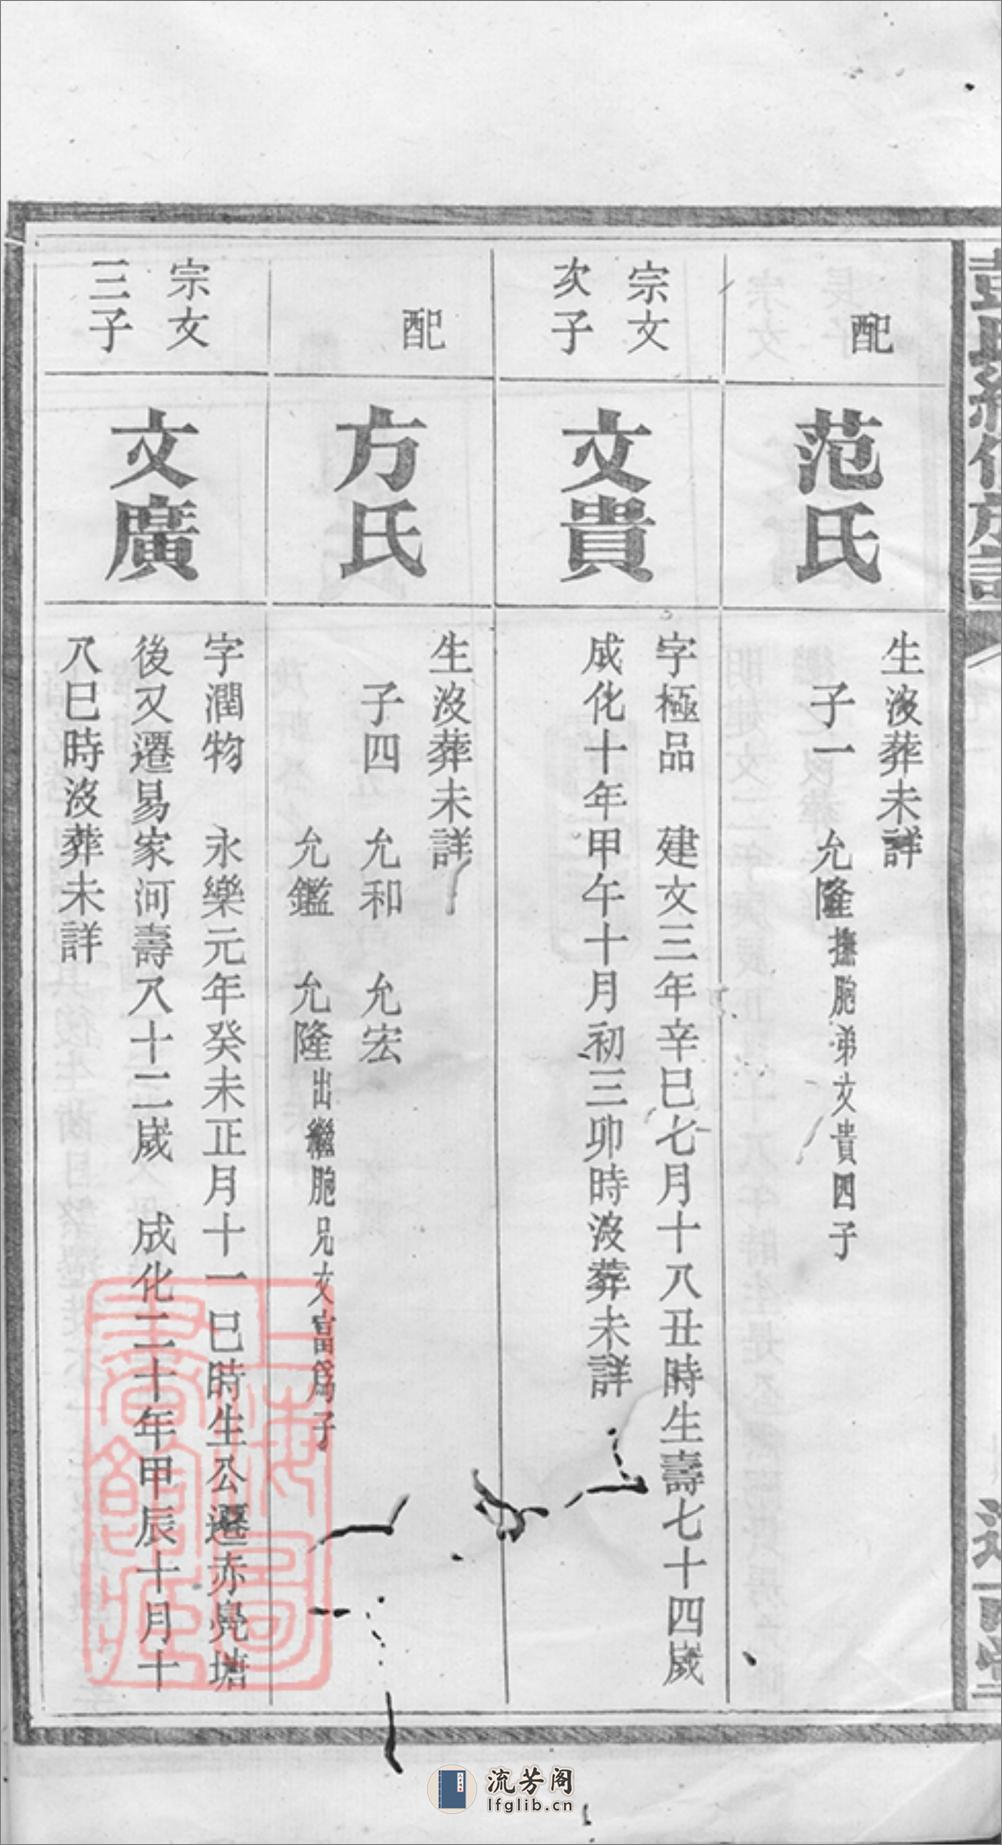 配
范氏
生沒葬未詳
子一　允隆撫胞弟文貴四子
宗文
次子
文貴
字極品　建文三年辛巳七月十八丑時生壽七十四歲
成化十年甲午十月初三卯時沒葬未詳
配
方氏
生沒葬未詳
子四　允和　允宏
允鑑　允隆出繼胞兄文富爲子
宗文
三子
文廣
字潤物　永樂元年癸未正月十一巳時生公遷赤亮塘
後又遷易家河壽八十二歲　成化二十年甲辰十月十
八巳時沒葬未詳
上海圖書館藏
流芳阁
lfglib.cn